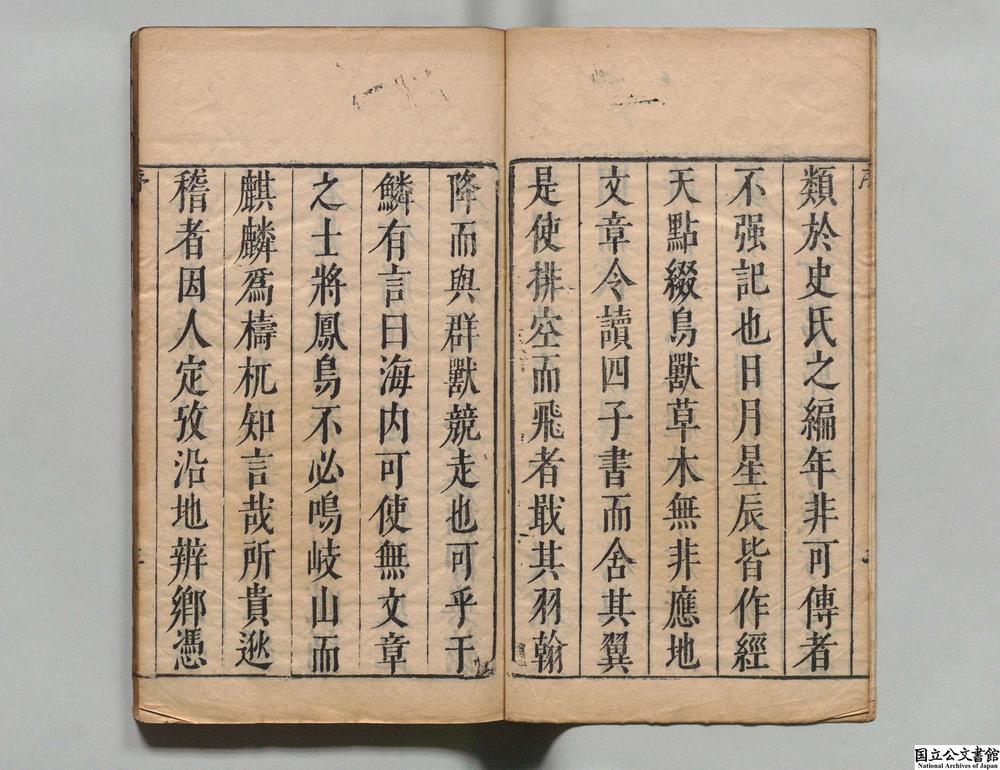 類於史氏之編年非可傳者
不强記也日月星辰皆作經
天點綴鳥獸草木無非應地
文章令讀四子書而舍其翼
是使排空而飛者戢其羽翰
降而與群獸競走也可乎于
鱗有言曰海内可使無文章
之士將鳳鳥不必鳴岐山而
麒麟爲檮杌知言哉所貴逖
稽者因人定攷沿地辨鄉憑
国立公文書館
National Archives of Japan